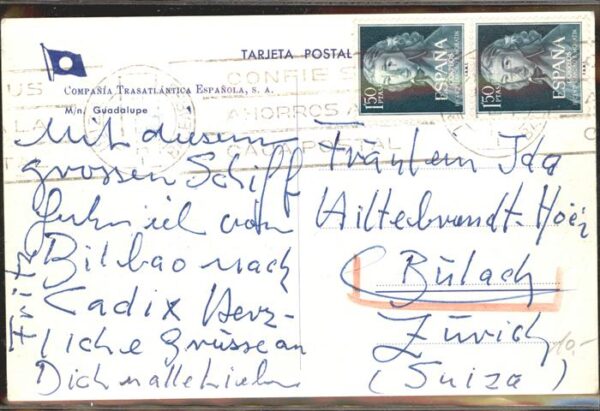 TARJETA POSTAL
COMPAÑÍA TRASATLÁNTICA ESPAÑOLA, S. A.
M/n. Guadalupe
CONFIE S
AHORROS A
CAJA POSTAL
1'50
PTAS
ESPAÑA
1'50
PTAS
ESPAÑA
Mit diesem
grossen Schiff
fuhr ich von
Bilbao nach
Cadix Herz-
liche Grüsse an
Dich alle Lieben
Fritz
Fräulein Ida
Hiltebrandt-
Bülach
Zürich
(Suiza)
10.-